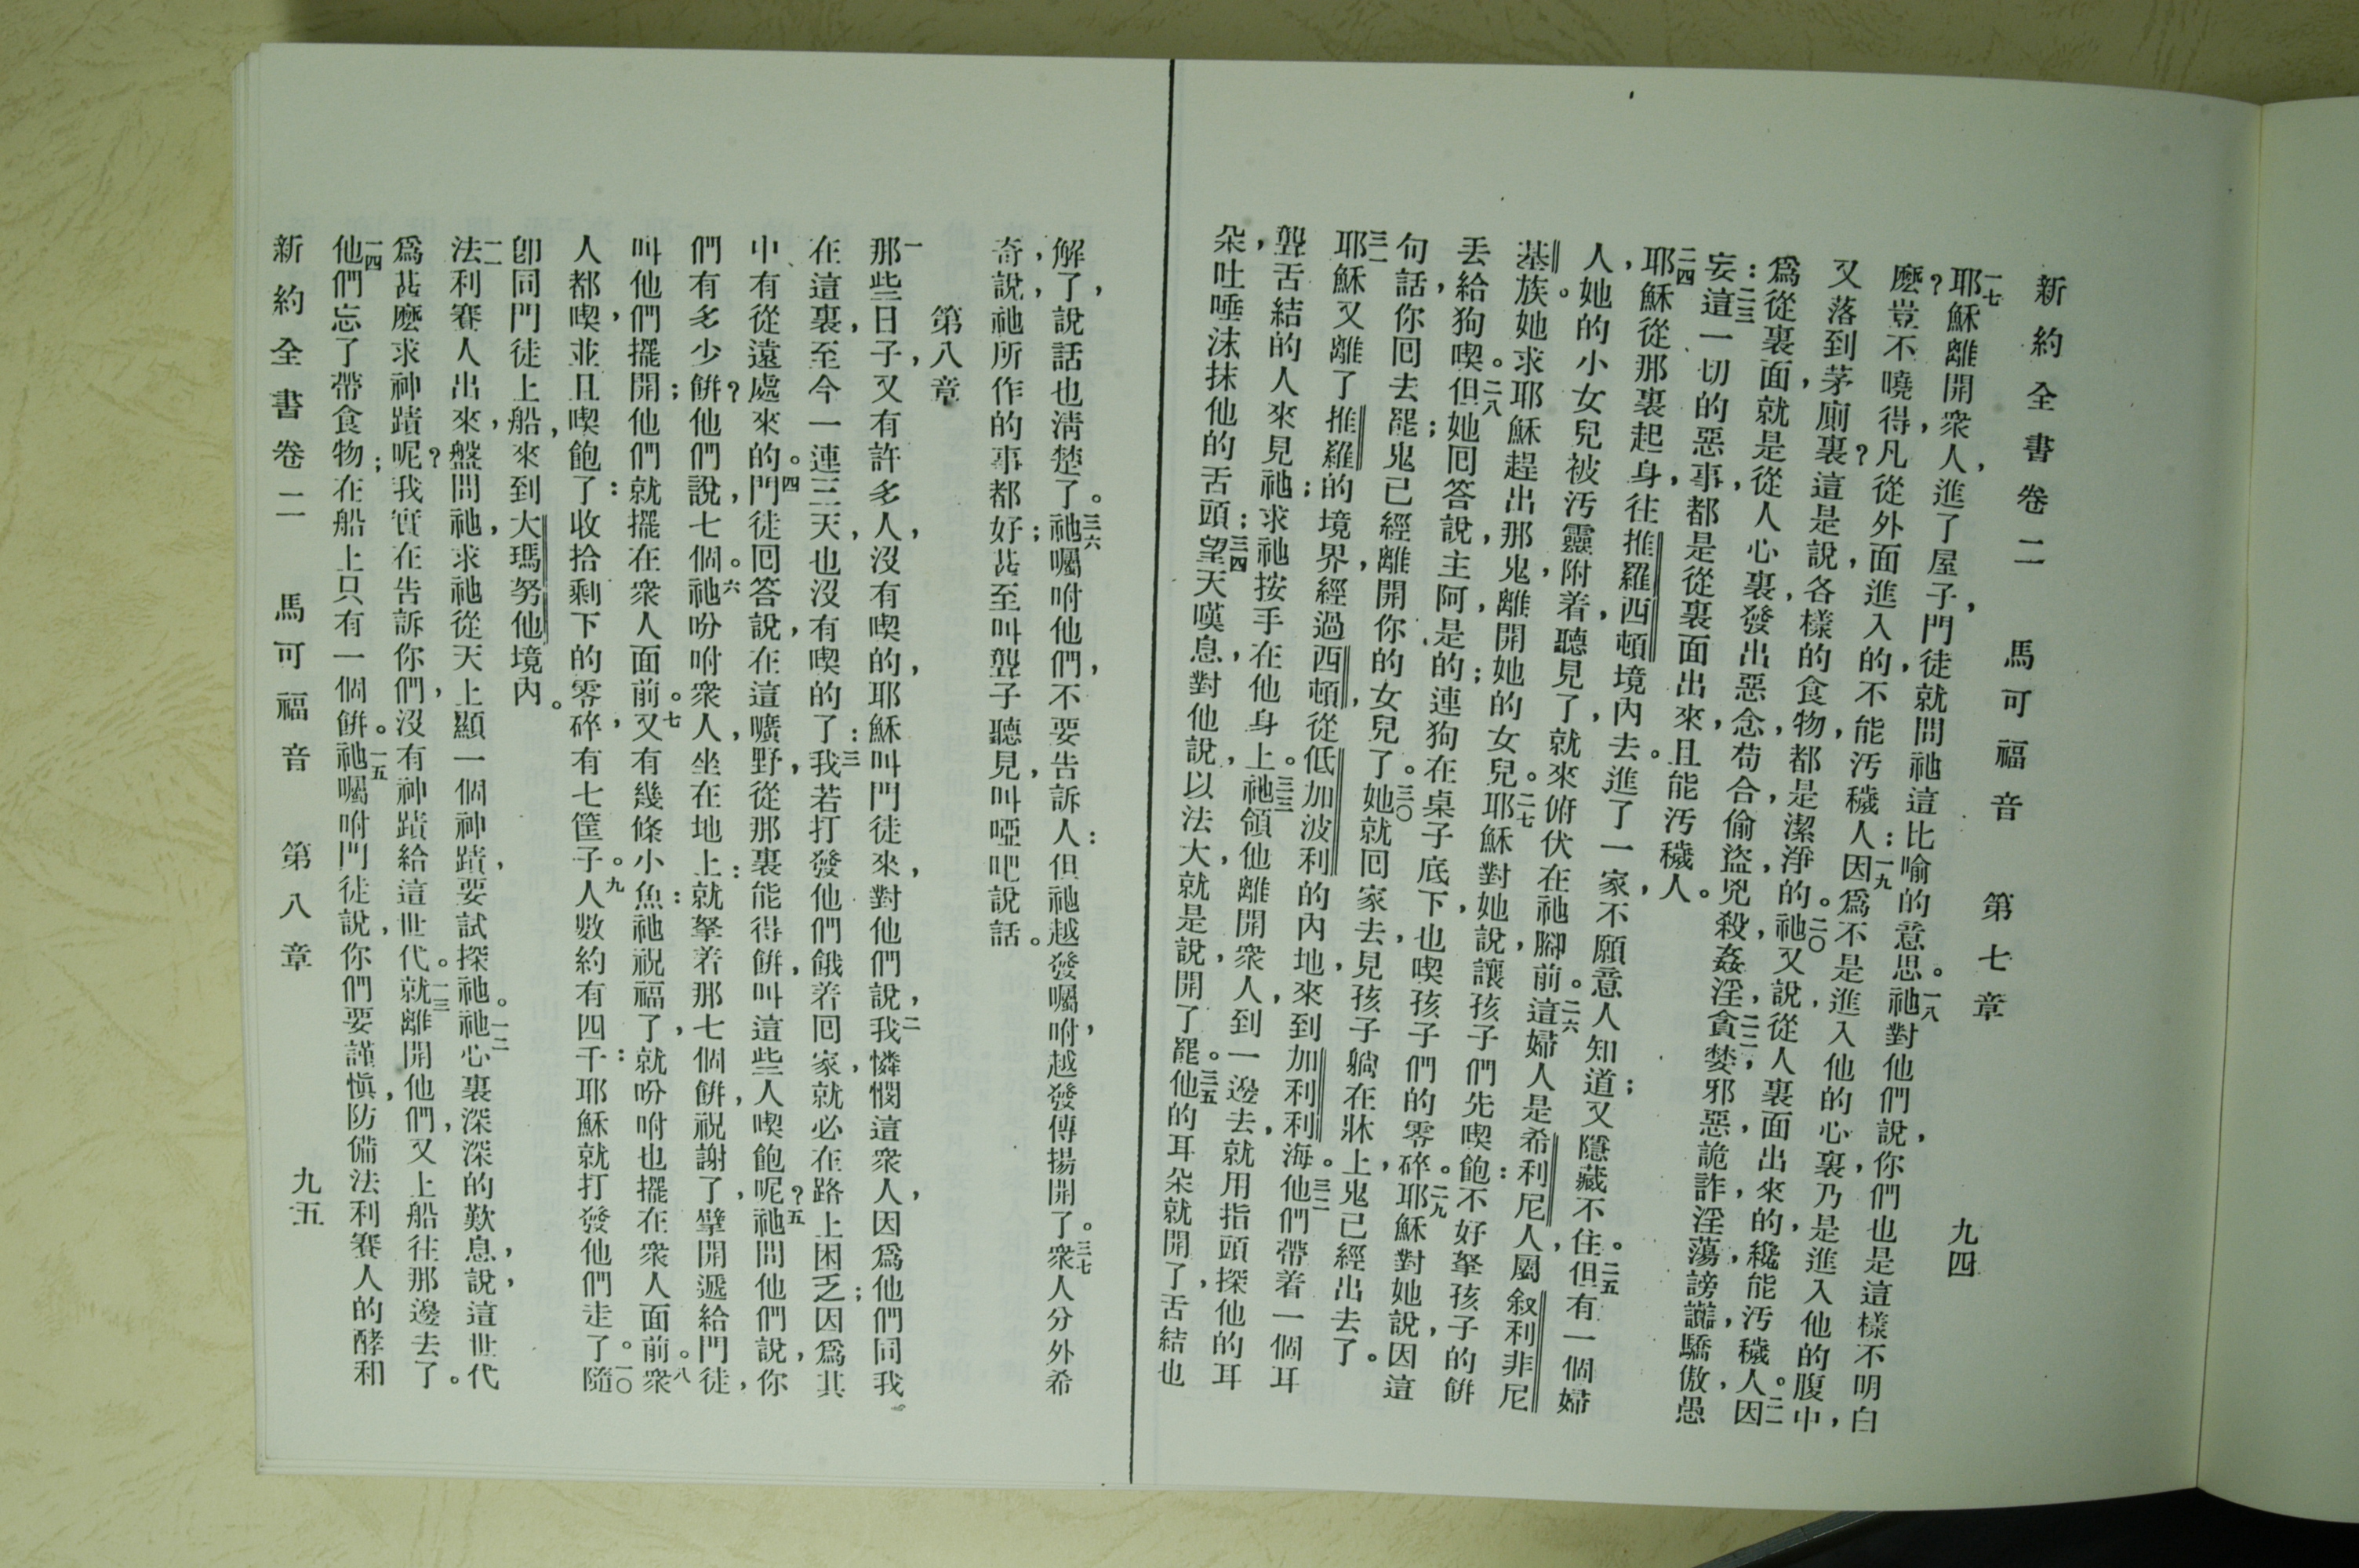 新約全書卷二　馬可福音　第七章　九四
一七耶穌離開衆人，進了屋子，門徒就問祂這比喻的意思。一八祂對他們說，你們也是這樣不明白
麼？豈不曉得，凡從外面進入的，不能汚穢人：一九因爲不是進入他的心裏，乃是進入他的腹中，
又落到茅廁裏？這是說，各樣的食物，都是潔淨的。二〇祂又說，從人裏面出來的，纔能汚穢人。二一因
爲從裏面，就是從人心裏，發出惡念，苟合，偷盜，兇殺，姦淫，二二貪婪，邪惡，詭詐，淫蕩，謗讟，驕傲，愚
妄：二三這一切的惡事，都是從裏面出來，且能汚穢人。
二四耶穌從那裏起身，往推羅西頓境內去。進了一家，不願意人知道；又隱藏不住。二五但有一個婦
人，她的小女兒被汚靈附着，聽見了，就來俯伏在祂腳前。二六這婦人是希利尼人，屬叙利非尼
基族。她求耶穌，趕出那鬼離開她的女兒。二七耶穌對她說，讓孩子們先喫飽：不好拏孩子的餅
丟給狗喫。二八但她囘答說，主阿，是的；連狗在桌子底下，也喫孩子們的零碎。二九耶穌對她說，因這
句話，你囘去罷；鬼已經離開你的女兒了。三〇她就囘家去，見孩子躺在牀上，鬼已經出去了。
三一耶穌又離了推羅的境界，經過西頓，從低加波利的內地，來到加利利海。三二他們帶着一個耳
聾舌結的人，來見祂；求祂按手在他身上。三三祂領他離開衆人，到一邊去，就用指頭探他的耳
朵，吐唾沫抹他的舌頭；三四望天嘆息，對他說，以法大，就是說，開了罷。三五他的耳朵就開了，舌結也
解了，說話也淸楚了。三六祂囑咐他們，不要告訴人：但祂越發囑咐，越發傳揚開了。三七衆人分外希
奇，說，祂所作的事都好；甚至叫聾子聽見，叫啞吧說話。
第八章
一那些日子，又有許多人，沒有喫的，耶穌叫門徒來，對他們說，二我憐憫這衆人，因爲他們同我
在這裏，至今一連三天，也沒有喫的了：三我若打發他們餓着囘家，就必在路上困乏；因爲其
中有從遠處來的。四門徒囘答說，在這曠野，從那裏能得餅，叫這些人喫飽呢？五祂問他們說，你
們有多少餅？他們說，七個。六祂吩咐衆人，坐在地上：就拏着那七個餅，祝謝了，擘開遞給門徒，
叫他們擺開；他們就擺在衆人面前。七又有幾條小魚：祂祝福了，就吩咐也擺在衆人面前。八衆
人都喫，並且喫飽了：收拾剩下的零碎，有七筐子。九人數約有四千：耶穌就打發他們走了。一〇隨
卽同門徒上船，來到大瑪努他境內。
一一法利賽人出來，盤問祂，求祂從天上顯一個神蹟，要試探祂。一二祂心裏深深的歎息，說，這世代
爲甚麼求神蹟呢？我實在告訴你們，沒有神蹟給這世代。一三就離開他們，又上船往那邊去了。
一四他們忘了帶食物；在船上只有一個餅。一五祂囑咐門徒說，你們要謹愼，防備法利賽人的酵和
新約全書卷二　馬可福音　第八章　九五